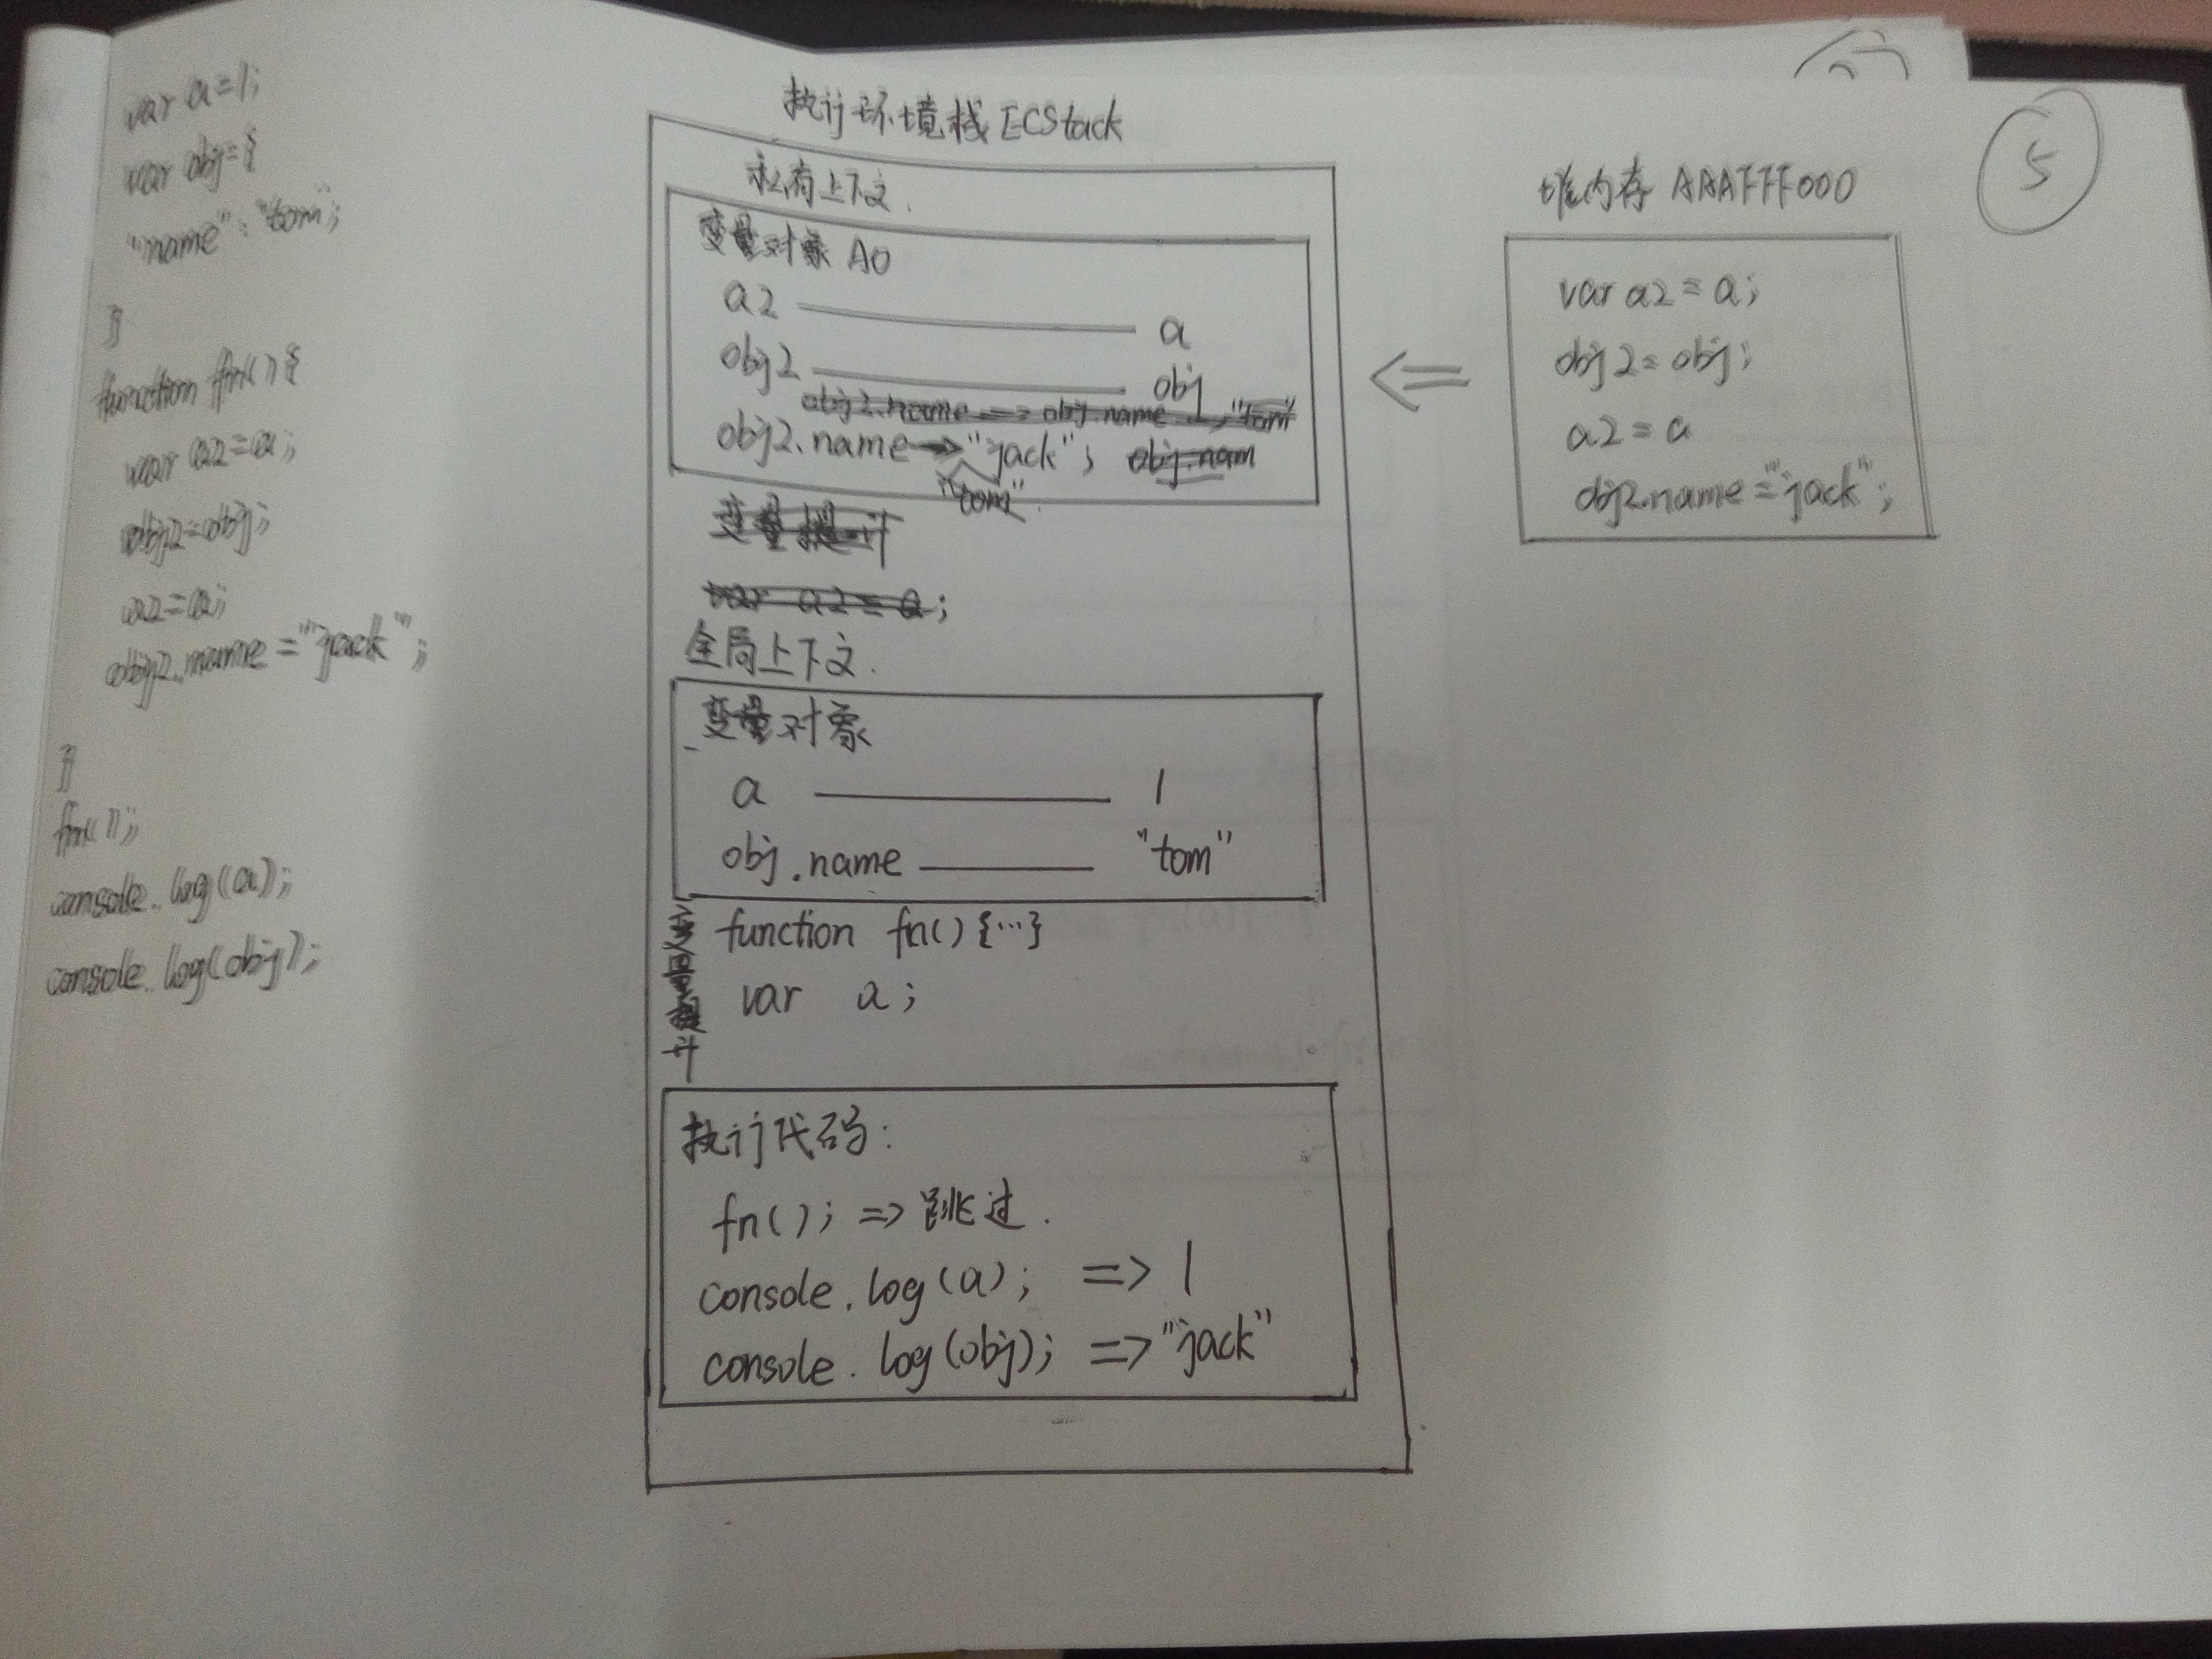 var a=1;
var obj={
"name":"tom";
}
function fn(){
var a2=a;
obj2=obj;
a2=a;
obj2.name="jack";
}
fn();
console.log(a);
console.log(obj);
执行环境栈 ECStack
私有上下文.
变量对象 AO
a2 —— a
obj2 —— obj
obj2.name => obj.name => "tom"
obj2.name → "jack"; obj.nam
"tom"
变量提升
var a2=a;
全局上下文.
变量对象
a —— 1
obj.name —— "tom"
function fn(){...}
var a;
执行代码:
fn(); => 跳过.
console.log(a); => 1
console.log(obj); => "jack"
堆内存 AAAFFF000
var a2=a;
obj2=obj;
a2=a
obj2.name="jack";
5